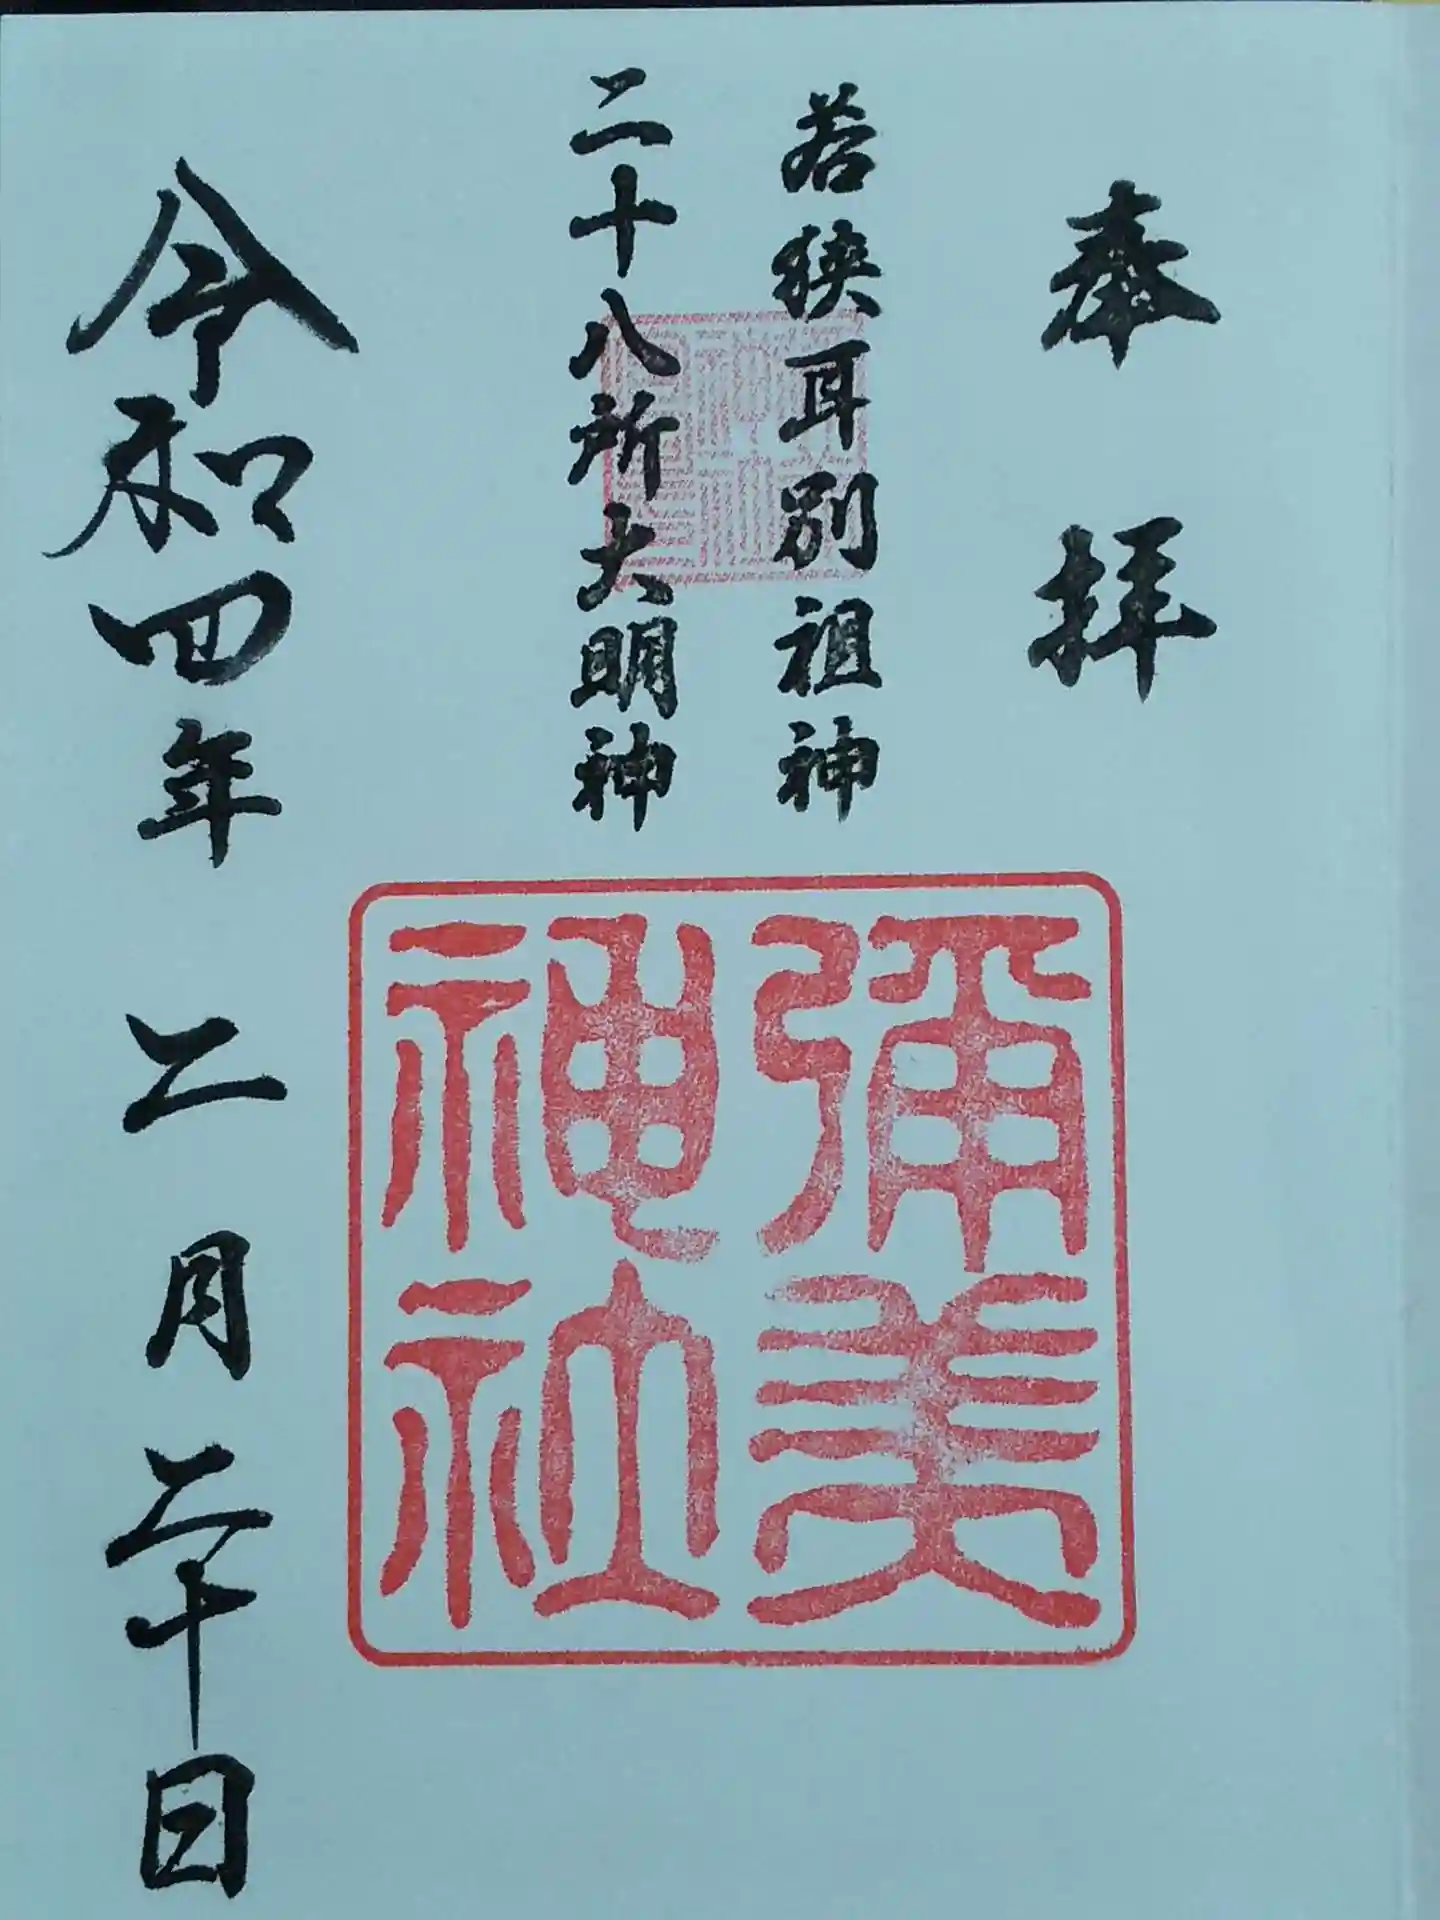 奉拝
若狭耳別祖神
二十八所大明神
彌美
神社
令和四年二月二十日